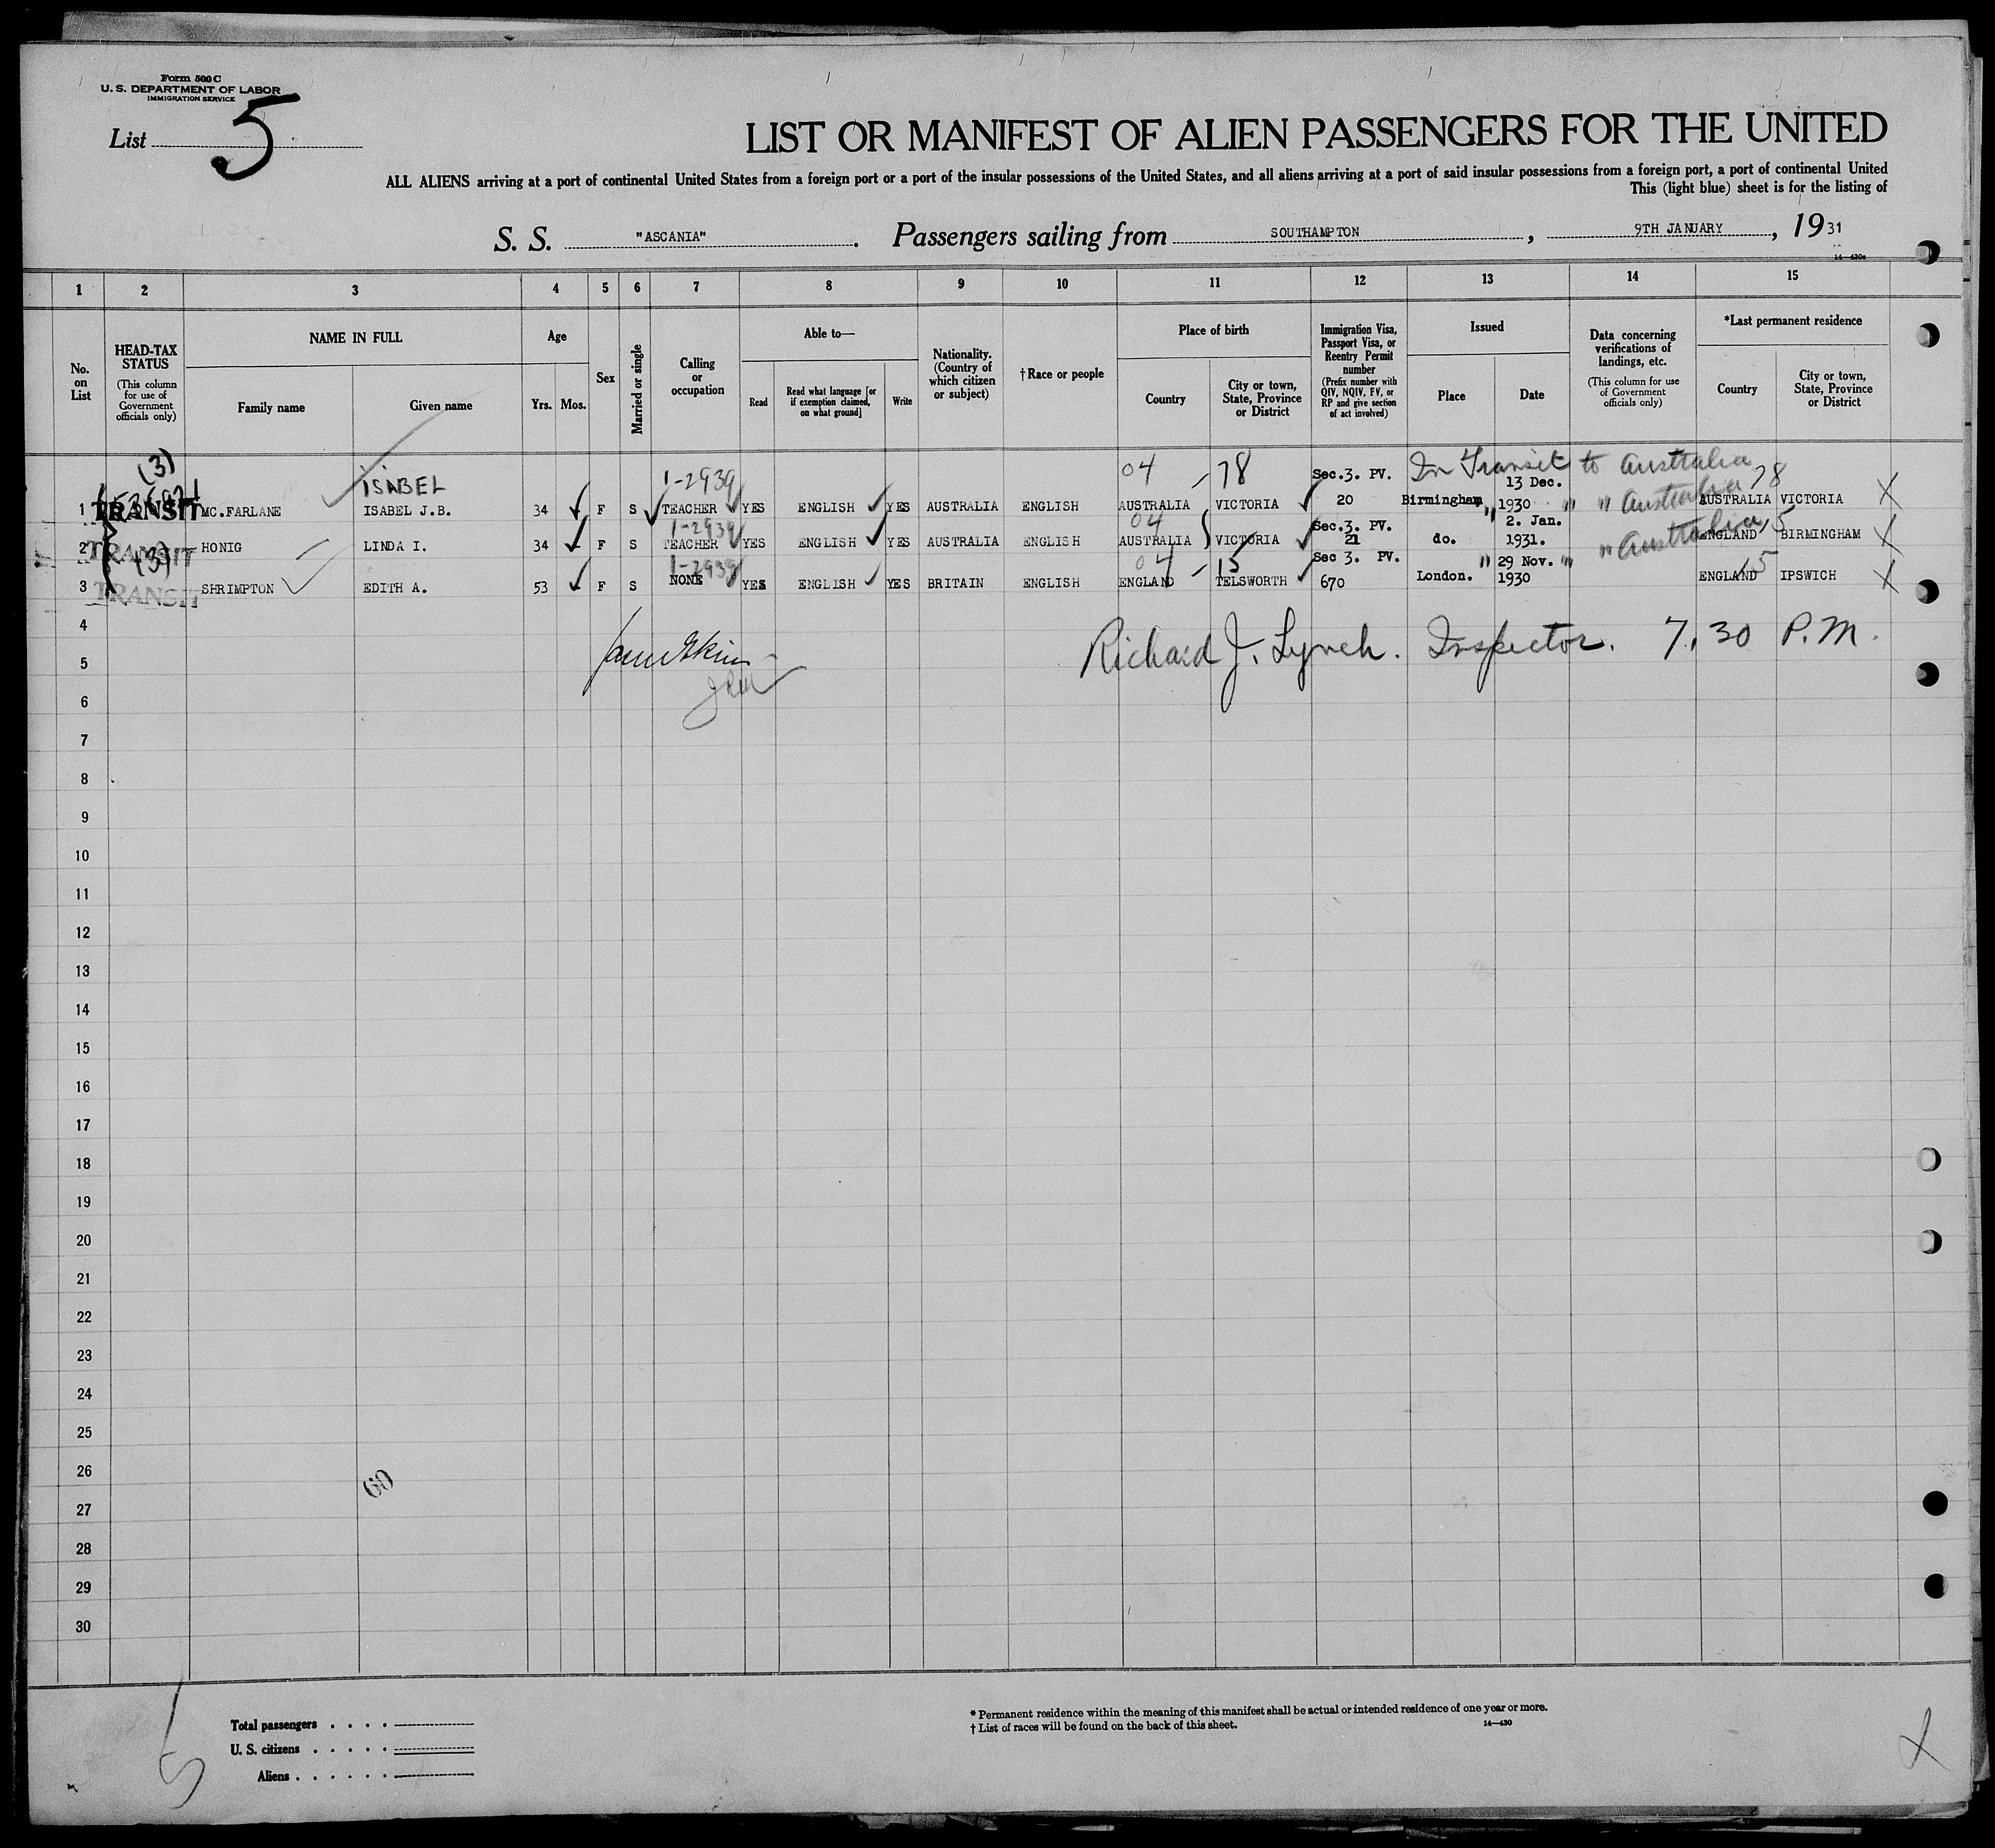 Form 500 C
U. S. DEPARTMENT OF LABOR
IMMIGRATION SERVICE
List 5
LIST OR MANIFEST OF ALIEN PASSENGERS FOR THE UNITED
ALL ALIENS arriving at a port of continental United States from a foreign port or a port of the insular possessions of the United States, and all aliens arriving at a port of said insular possessions from a foreign port, a port of continental United
This (light blue) sheet is for the listing of
S. S. "ASCANIA". Passengers sailing from SOUTHAMPTON, 9TH JANUARY, 1931
14—430a
1 2 3 4 5 6 7 8 9 10 11 12 13 14 15
No. on List
HEAD-TAX STATUS
(This column for use of Government officials only)
NAME IN FULL
Family name
Given name
Age
Yrs. Mos.
Sex
Married or single
Calling or occupation
Able to—
Read
Read what language [or if exemption claimed, on what ground]
Write
Nationality. (Country of which citizen or subject)
†Race or people
Place of birth
Country
City or town, State, Province or District
Immigration Visa, Passport Visa, or Reentry Permit number
(Prefix number with QIV, NQIV, FV, or RP and give section of act involved)
Issued
Place
Date
Data concerning verifications of landings, etc.
(This column for use of Government officials only)
*Last permanent residence
Country
City or town, State, Province or District
(3) ISABEL 1-2939 04 - 78 Sec.3. PV. In Transit to Australia 13 Dec. 78
1 TRANSIT MC.FARLANE ISABEL J.B. 34 F S TEACHER YES ENGLISH YES AUSTRALIA ENGLISH AUSTRALIA VICTORIA 20 Birmingham 1930 " " Australia AUSTRALIA VICTORIA X
1-2939 04 Sec.3. PV. " 2. Jan. 15
2 TRANSIT HONIG LINDA I. 34 F S TEACHER YES ENGLISH YES AUSTRALIA ENGLISH AUSTRALIA VICTORIA 21 do. 1931. " Australia ENGLAND BIRMINGHAM X
(3) 1-2939 04 - 15 Sec 3. PV. " 29 Nov. " 15
3 TRANSIT SHRIMPTON EDITH A. 53 F S NONE YES ENGLISH YES BRITAIN ENGLISH ENGLAND TELSWORTH 670 London. 1930 ENGLAND IPSWICH X
4
Richard J. Lynch. Inspector. 7.30 P.M.
5
6
7
8
9
10
11
12
13
14
15
16
17
18
19
20
21
22
23
24
25
26
60
27
28
29
30
Total passengers . . . .
U. S. citizens . . . . .
Aliens . . . . . .
* Permanent residence within the meaning of this manifest shall be actual or intended residence of one year or more.
† List of races will be found on the back of this sheet.
14—430
5
X